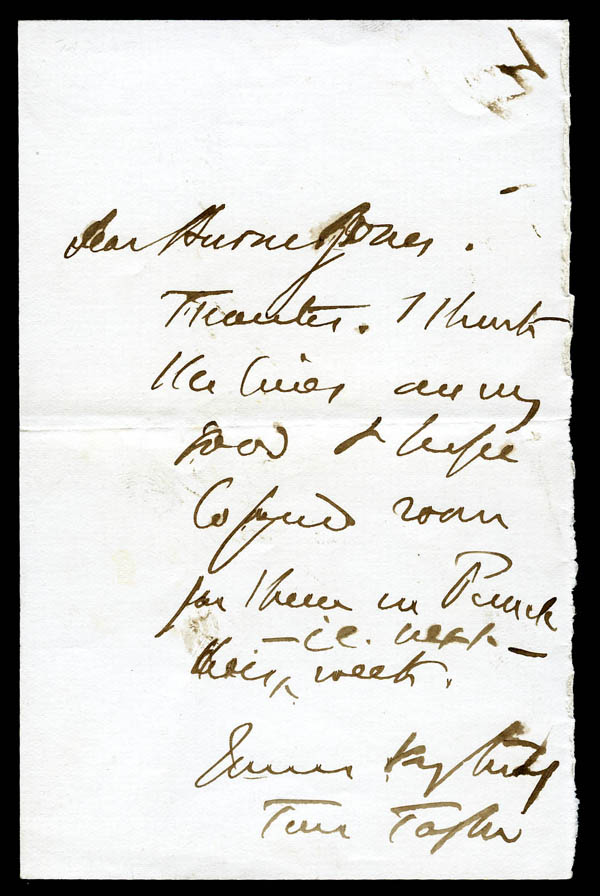 Dear Burne Jones.
Thanks. I think
the lines are very
good & hope
to find room
for them in Punch
– i.e. next –
this, week.
Yours very truly
Tom Taylor